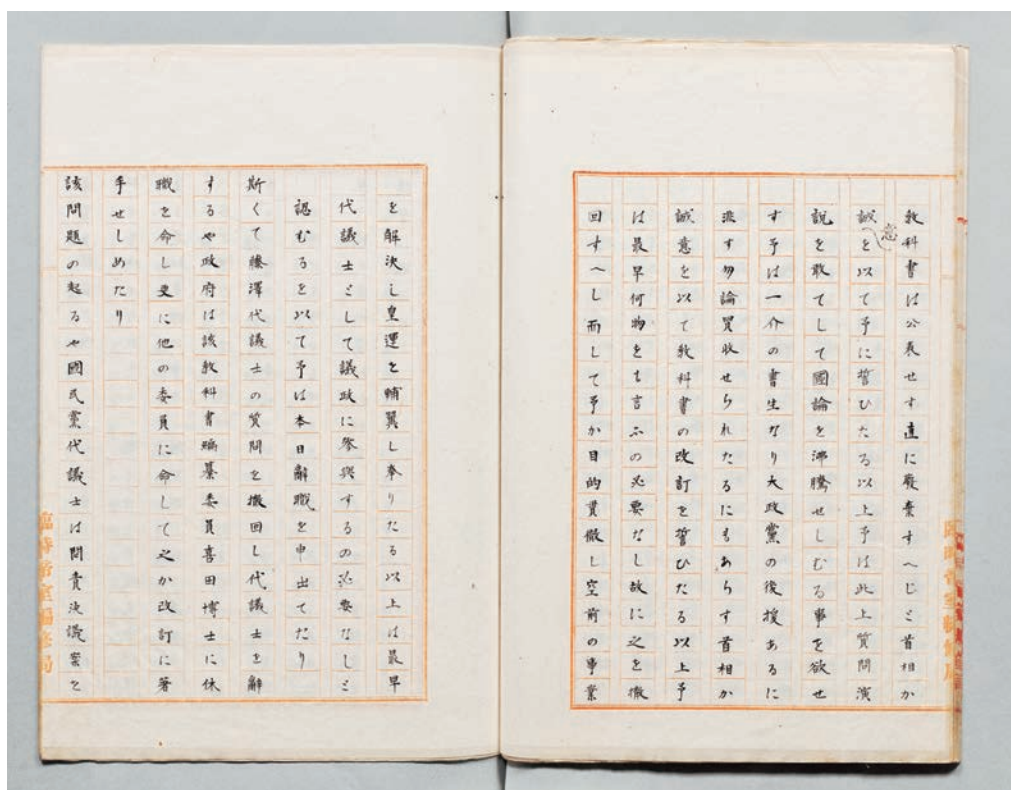 教科書は公表せす直に廢棄すへしと首相か
誠意を以て予に誓ひたる以上予は此上質問演
説を敢てして國論を沸騰せしむる事を欲せ
す予は一介の書生なり大政黨の後援あるに
非す勿論買收せられたるにもあらす首相か
誠意を以て教科書の改訂を誓ひたる以上予
は最早何物をも言ふの必要なし故に之を撤
回すへし而して予か目的貫徹し空前の事業
を解決し皇運を輔翼し奉りたる以上は最早
代議士として議政に參與するの必要なしと
認むるを以て予は本日辭職を申出てたり
斯くて藤澤代議士の質問を撤回し代議士を辭
するや政府は該教科書編纂委員喜田博士に休
職を命し更に他の委員に命して之か改訂に著
手せしめたり
該問題の起るや國民黨代議士は問責決議案を
臨時帝室編修局
臨時帝室編修局